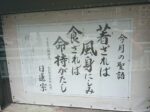 今月の聖語
着ざれば
風身にしみ
食ざれば
命持がたし
日蓮宗